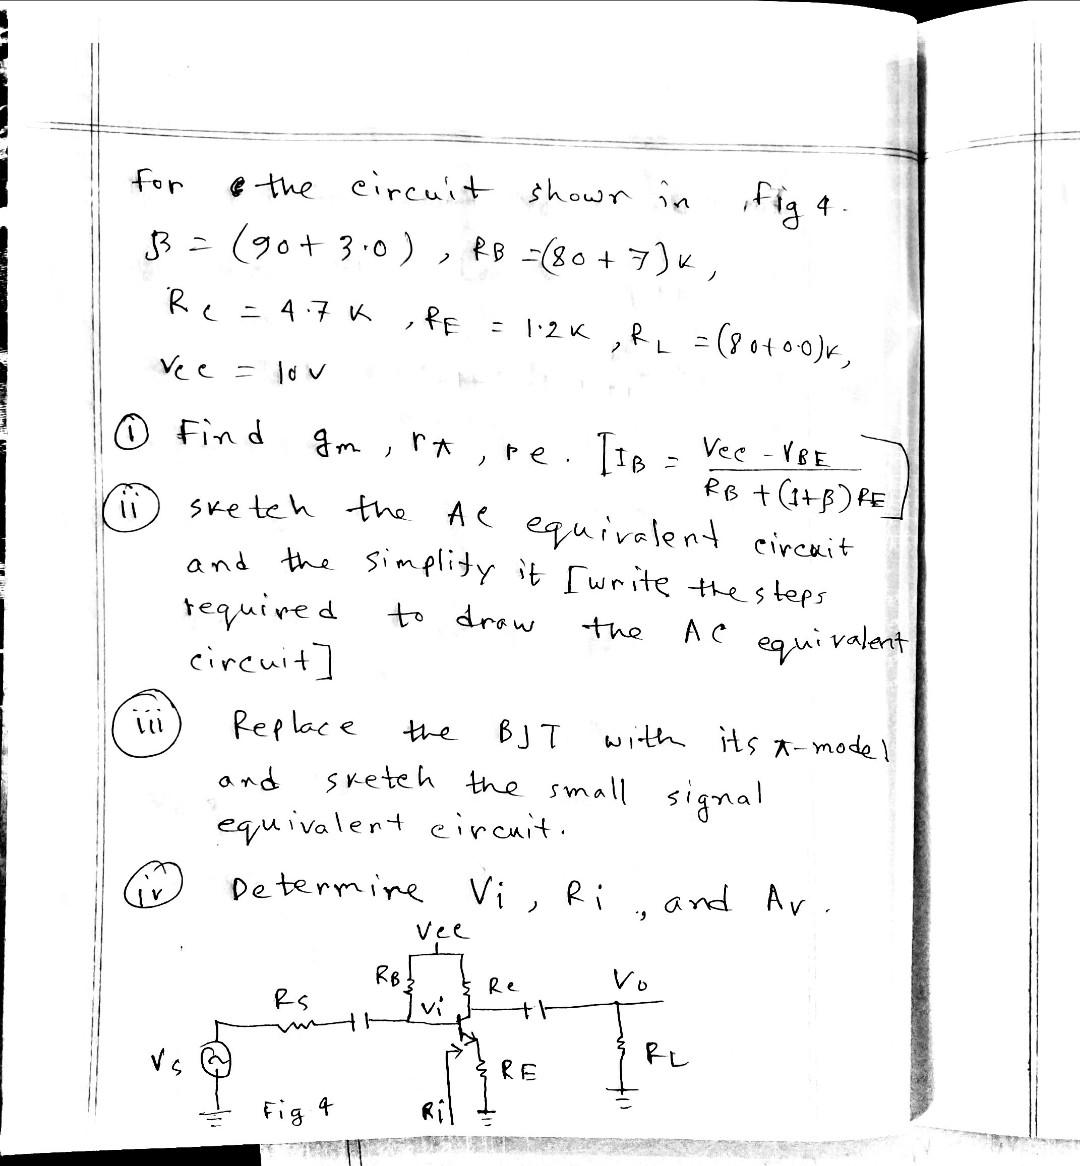 for the circuit shown in fig 4.
β = (90 + 3.0), RB = (80 + 7)K,
Rc = 4.7 K, RE = 1.2 K, RL = (80+0.0)K,
Vcc = 10 V
(i) Find gm, rπ, re. [IB = (Vcc - VBE) / (RB + (1+β) RE)]
(ii) sketch the AC equivalent circuit
and the simplify it [write the steps
required to draw the AC equivalent
circuit]
(iii) Replace the BJT with its π-model
and sketch the small signal
equivalent circuit.
(iv) Determine Vi, Ri, and Av.
Vcc
RB
Rc
Vo
Rs
Vi
Vs
RE
RL
Fig 4
Ri